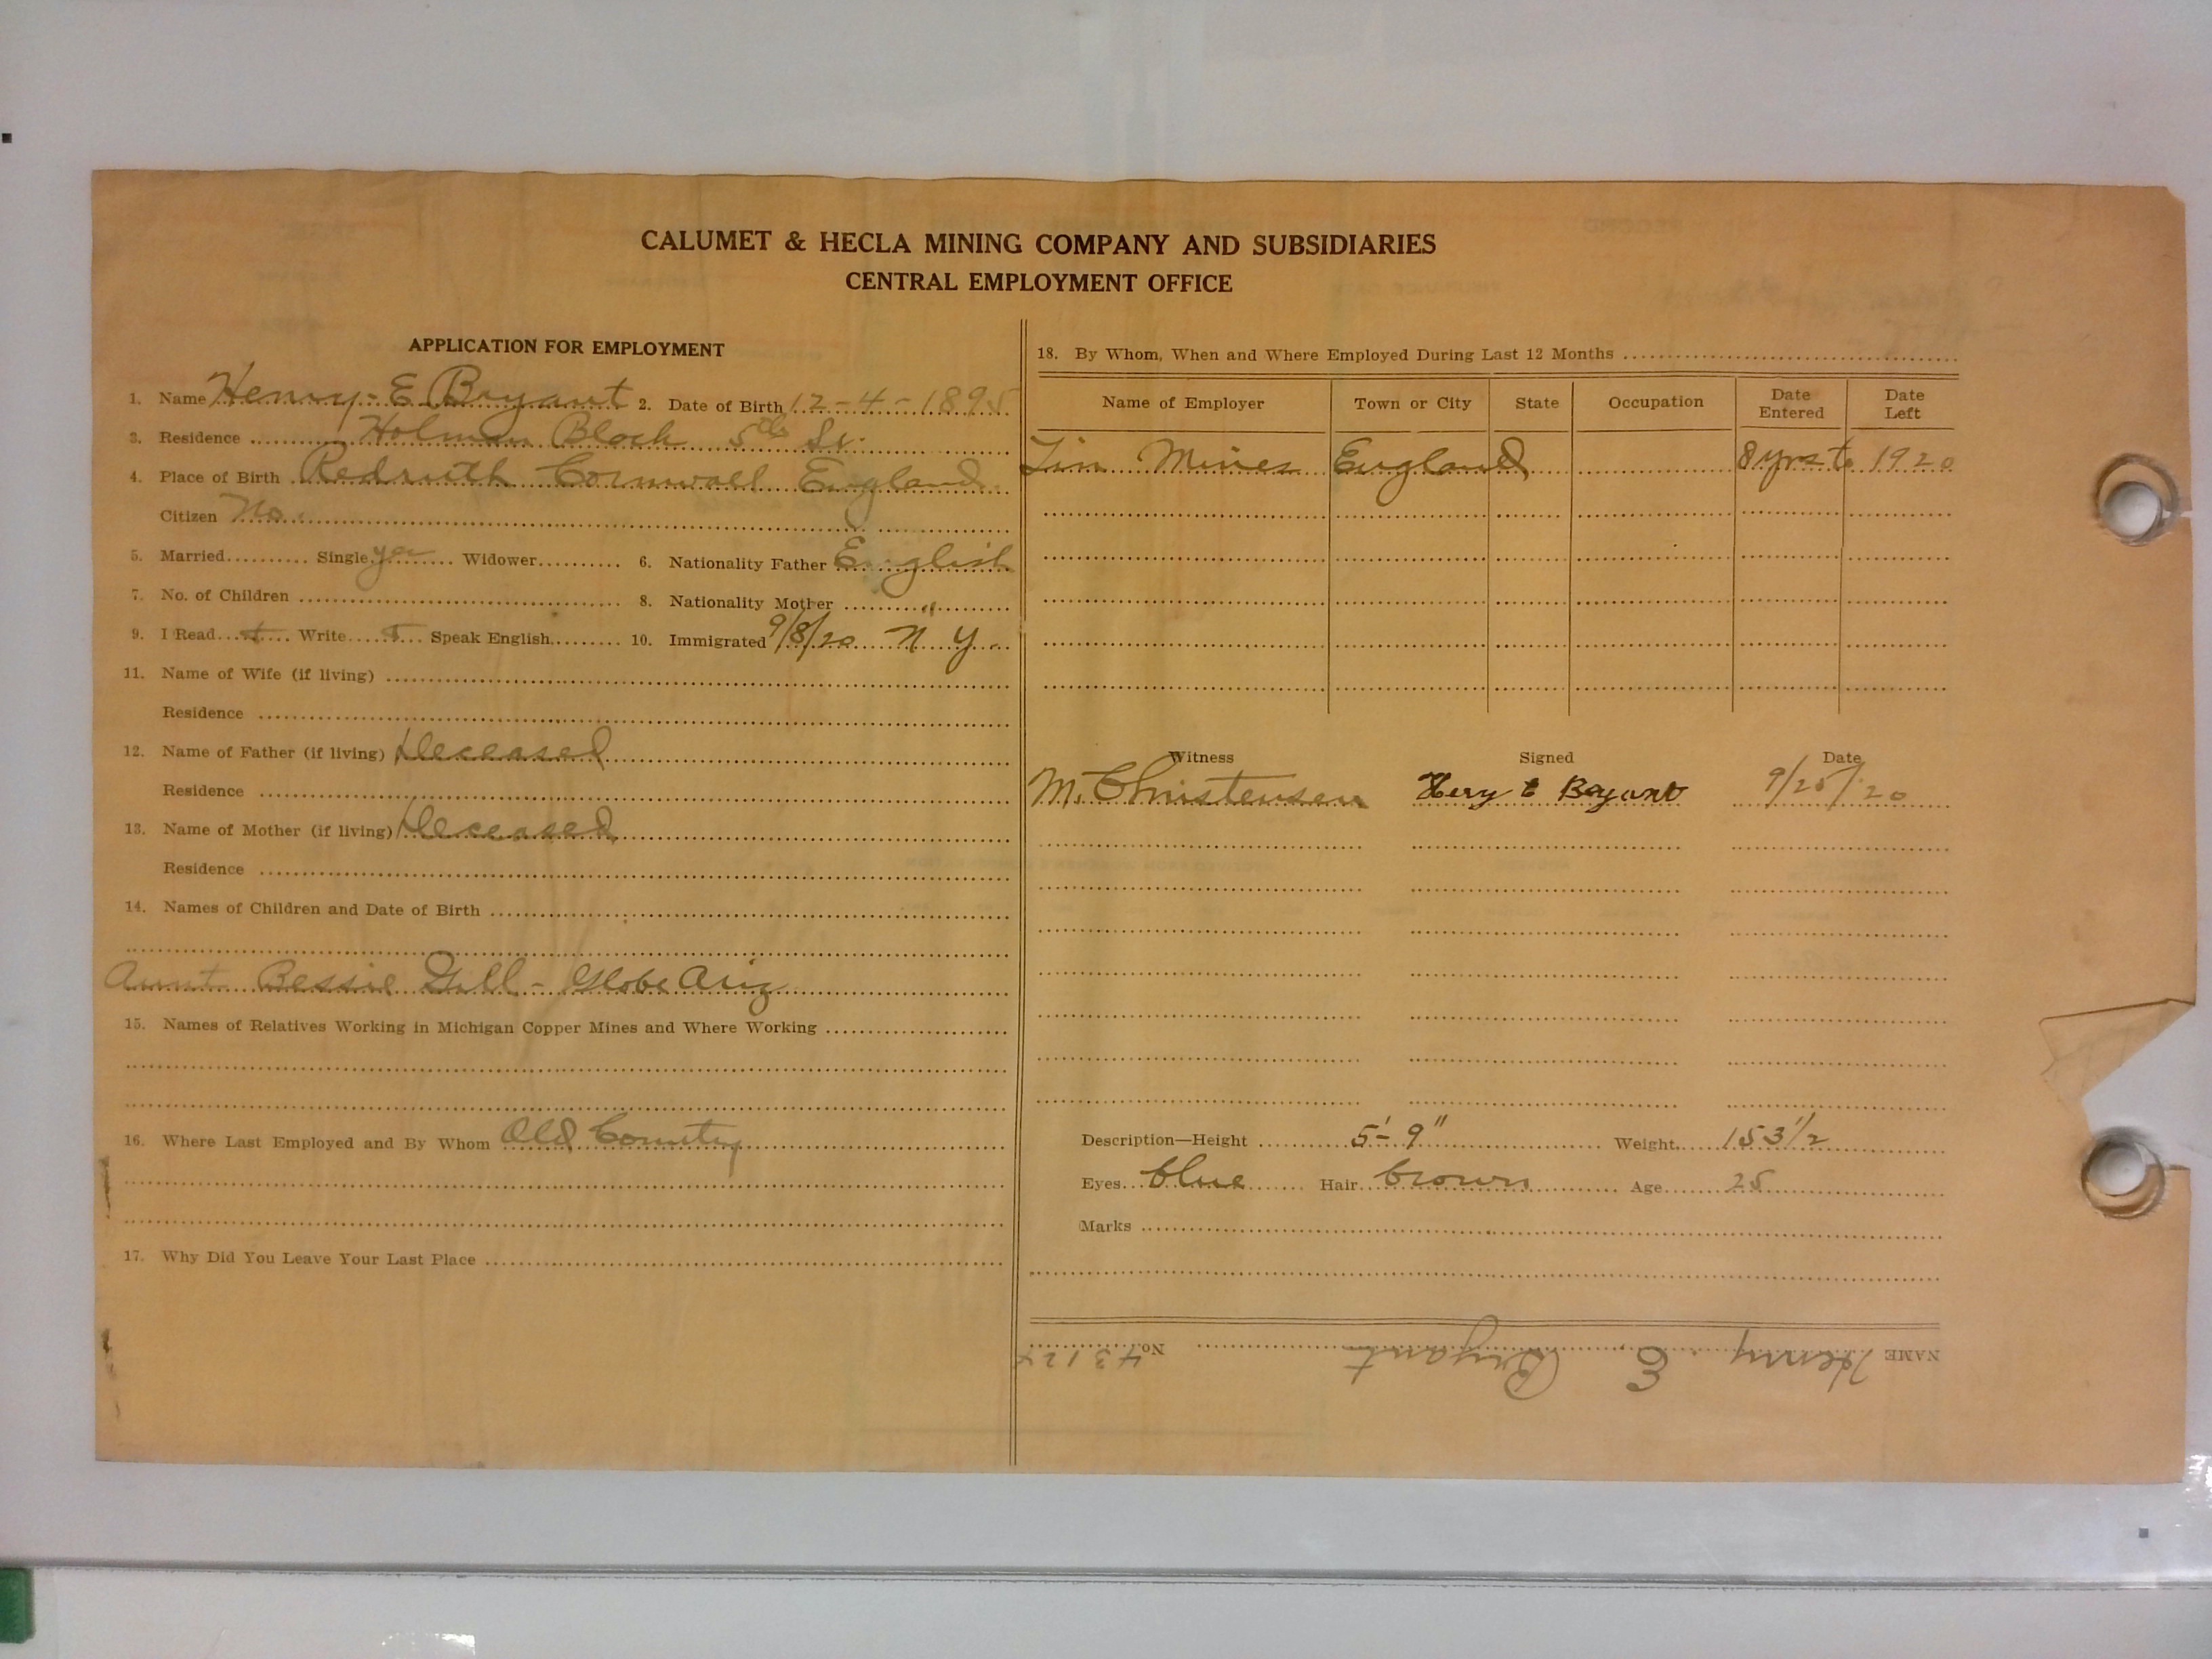 CALUMET & HECLA MINING COMPANY AND SUBSIDIARIES
CENTRAL EMPLOYMENT OFFICE
APPLICATION FOR EMPLOYMENT
1. Name Henry - E Bryant 2. Date of Birth 12-4-1895
3. Residence Holman Block 5th St.
4. Place of Birth Redruth Cornwall England
Citizen No
5. Married Single yes Widower 6. Nationality Father English
7. No. of Children 8. Nationality Mother "
9. I Read Write Speak English 10. Immigrated 9/8/20 N Y.
11. Name of Wife (if living)
Residence
12. Name of Father (if living) Deceased
Residence
13. Name of Mother (if living) Deceased
Residence
14. Names of Children and Date of Birth
Aunt Bessie Gill - Globe Ariz
15. Names of Relatives Working in Michigan Copper Mines and Where Working
16. Where Last Employed and By Whom Old Country
17. Why Did You Leave Your Last Place
18. By Whom, When and Where Employed During Last 12 Months
Name of Employer Town or City State Occupation Date Entered Date Left
Tin Mines England 8 yrs to 1920
Witness Signed Date
M. Christensen Henry E Bryant 9/25/20
Description—Height 5'-9" Weight 153 1/2
Eyes blue Hair brown Age 25
Marks
NAME Henry E. Bryant No. 43124